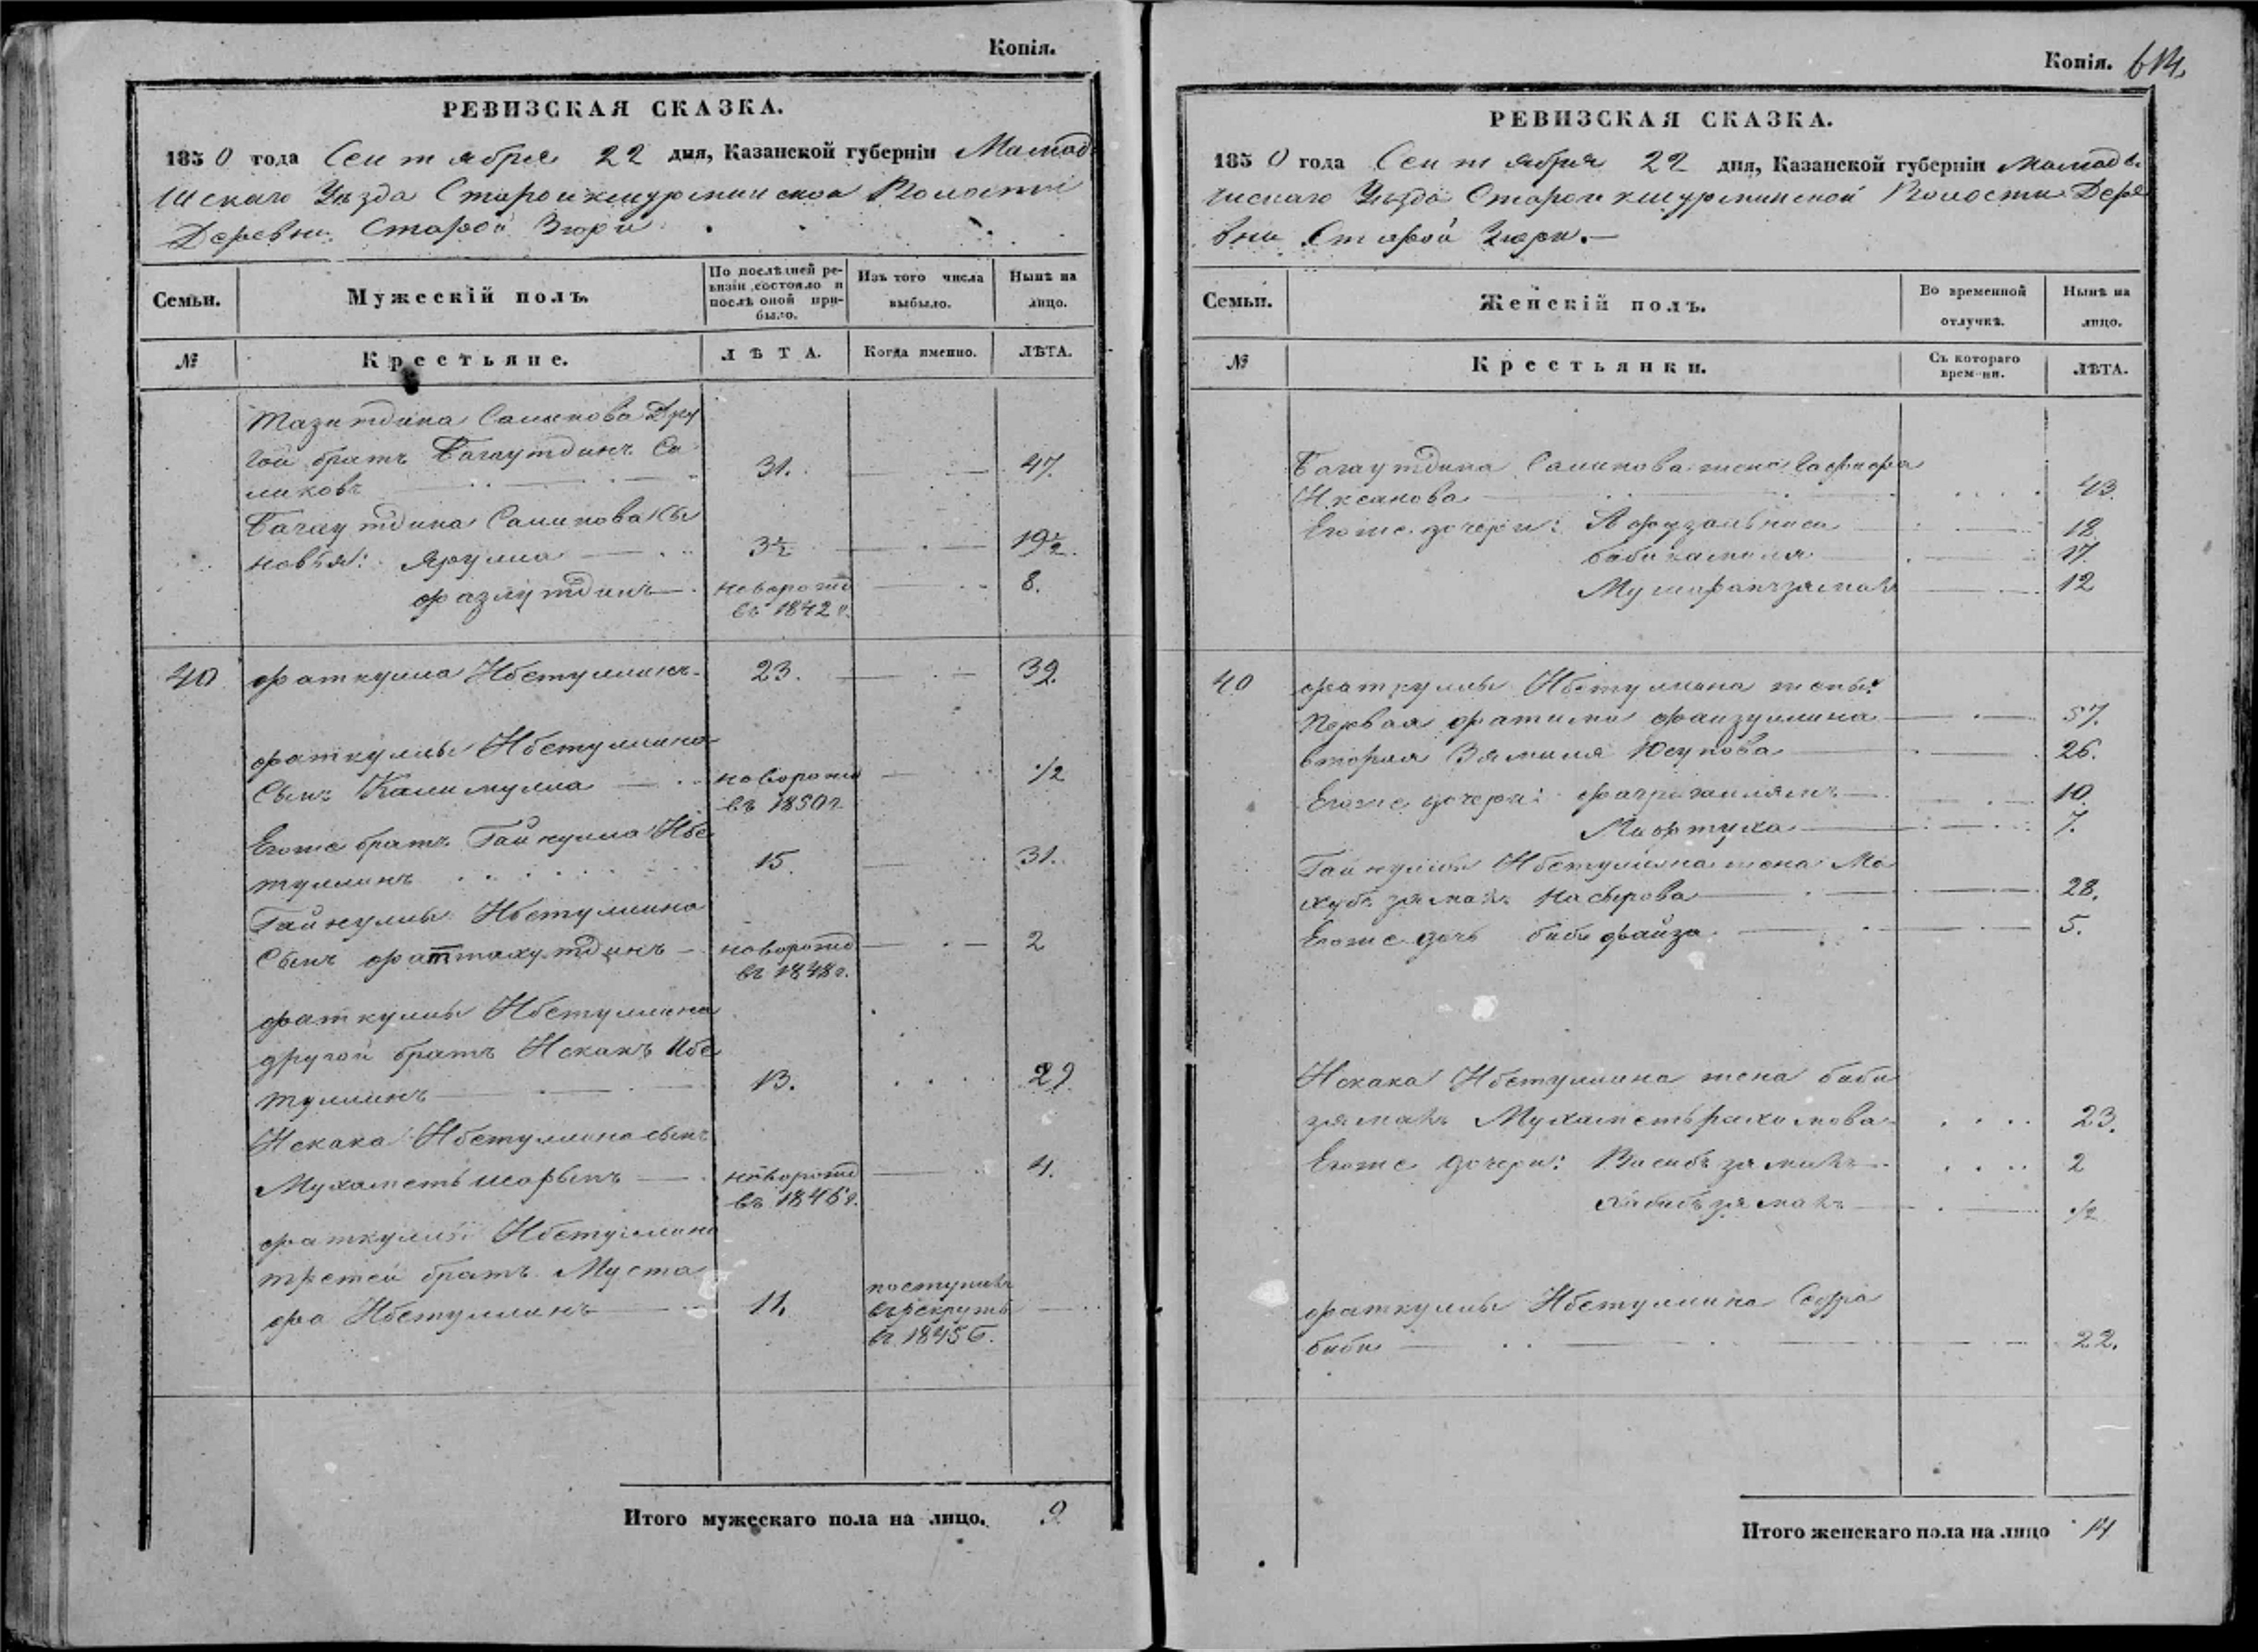 Копія.
РЕВИЗСКАЯ СКАЗКА.
1850 года Сентября 22 дня, Казанской губерніи Мамад
ышскаго Уѣзда Старо
Волости
Деревни Старой Зюри
Семьи.
Мужескій полъ.
По послѣдней ре-
визіи состояло и
послѣ оной при-
было.
Изъ того числа
выбыло.
Нынѣ на
лицо.
№
Крестьяне.
ЛѢТА.
Когда именно.
ЛѢТА.
Тазитдина Саликова Дру
гой братъ Багаутдинъ Са
ликовъ 31. 47.
Багаутдина Саликова Сы
новья: Ярулла 3½ 19½.
Фазлутдинъ новорожд 8.
въ 1842 г.
40 Фаткулла Ибетуллинъ 23. 39.
Фаткуллы Ибетуллина
Сынъ Калимулла новорожд ½
въ 1850 г.
Егоже братъ Гайнулла Ибе
туллинъ 15. 31.
Гайнуллы Ибетуллина
Сынъ Фаттахутдинъ новорожд 2
въ 1848 г.
Фаткуллы Ибетуллина
другой братъ Искакъ Ибе
туллинъ 13. 29.
Искака Ибетуллина сынъ
Мухаметьшарыпъ новорожд 4.
въ 1846 г.
Фаткуллы Ибетуллина
третей братъ Муста
фа Ибетуллинъ 11. поступилъ
въ рекруты
въ 1845 г.
Итого мужескаго пола на лицо. 9
Копія.
РЕВИЗСКАЯ СКАЗКА.
1850 года Сентября 22 дня, Казанской губерніи Мамады
шскаго Уѣзда Старо
Волости Дере
вни Старой Зюри.
Семьи.
Женскій полъ.
Во временной
отлучкѣ.
Нынѣ на
лицо.
№
Крестьянки.
Съ котораго
времени.
ЛѢТА.
Багаутдина Саликова жена Гафифа
Иксанова 43.
Егоже дочери: Афузальниса 18
бибикамиля 17.
Мушарапъзямалъ 12
40 Фаткуллы Ибетуллина жены:
Первая Фатима Фаизуллина 57.
вторая Зямиля Юсупова 26.
Егоже дочери: 10.
Мафтуха 7.
Гайнуллы Ибетуллина жена Ма
хубъзямалъ Насырова 28.
Егоже дочь биби файза 5.
Искака Ибетуллина жена биби
зямалъ Мухаметьрахимова 23.
Егоже дочери: Васибъзямалъ 2
Хабибъзямалъ ½
Фаткуллы Ибетуллина
биби 22.
Итого женскаго пола на лицо 14